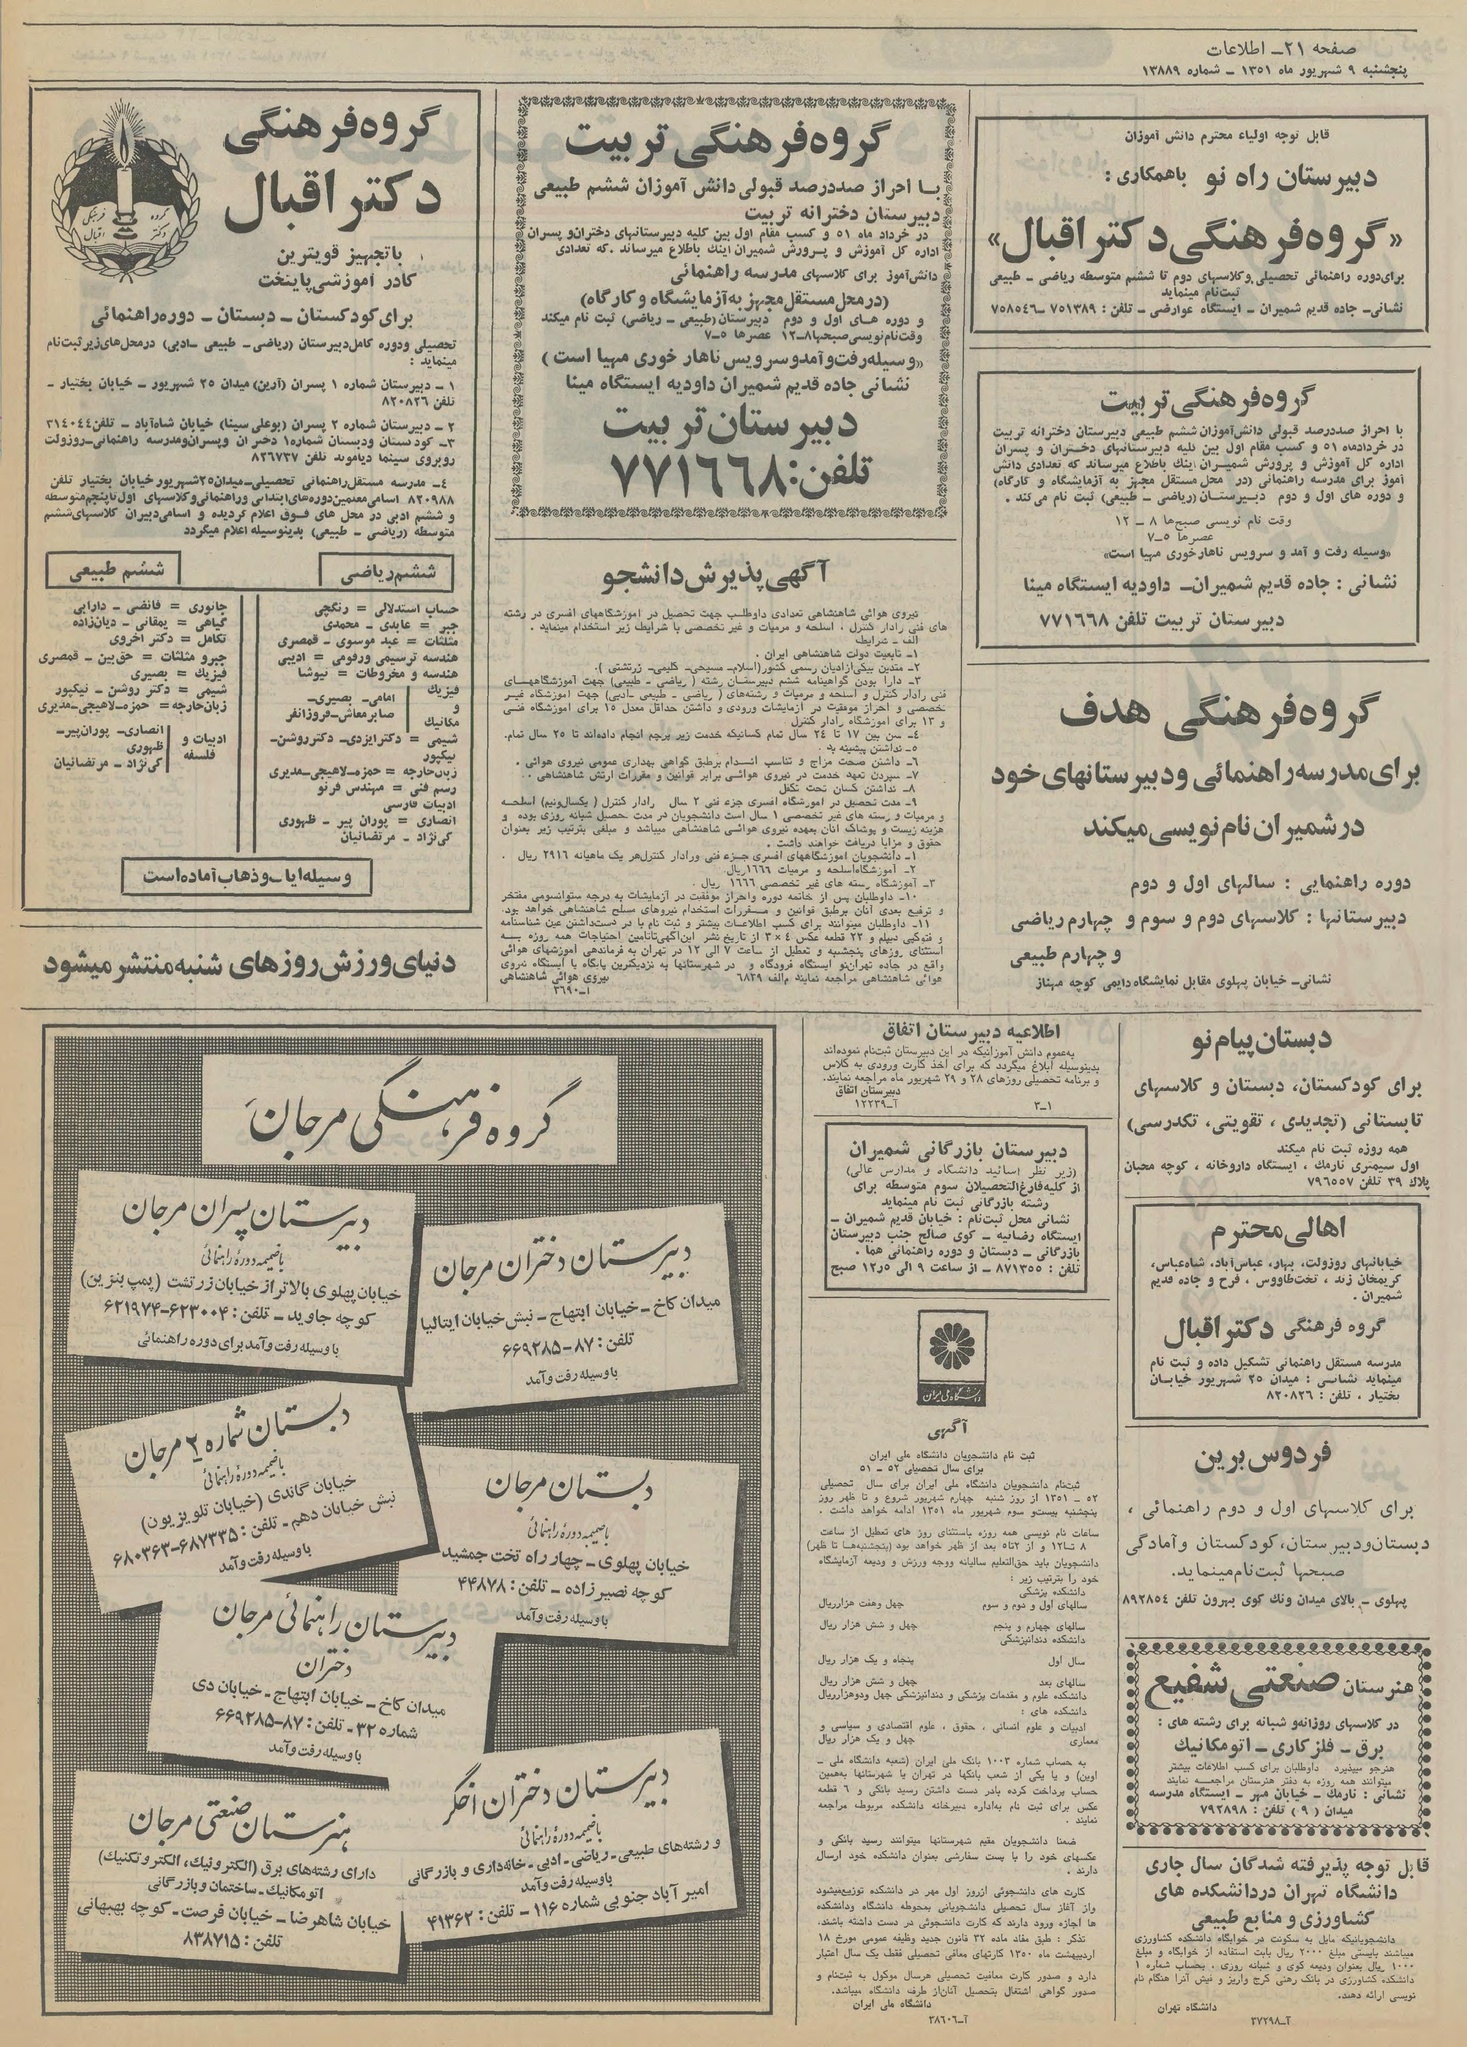 صفحه ۲۱ـ اطلاعات
پنجشنبه ۹ شهریور ماه ۱۳۵۱ ـ شماره ۱۳۸۸۹
قابل توجه اولیاء محترم دانش آموزان
دبیرستان راه نو باهمکاری :
«گروه‌فرهنگی دکتر اقبال»
برای‌دوره راهنمائی تحصیلی وکلاسهای دوم تا ششم متوسطه ریاضی ـ طبیعی
ثبت‌نام مینماید
نشانی‌ـ جاده قدیم شمیران ـ ایستگاه عوارضی ـ تلفن : ۷۵۱۳۸۹ ـ۷۵۸۵۴۶
گروه‌فرهنگی تربیت
با احراز صددرصد قبولی دانش‌آموزان ششم طبیعی دبیرستان دخترانه تربیت
در خردادماه ۵۱ و کسب مقام اول بین کلیه دبیرستانهای دختران و پسران
اداره کل آموزش و پرورش شمیران اینك باطلاع میرساند که تعدادی دانش
آموز برای مدرسه راهنمائی (در محل مستقل مجهز به آزمایشگاه و کارگاه)
و دوره های اول و دوم دبیرستان (ریاضی ـ طبیعی) ثبت نام می‌کند .
وقت نام نویسی صبح‌ها ۸ ـ ۱۲
عصرها ۵ـ۷
«وسیله رفت و آمد و سرویس ناهارخوری مهیا است»
نشانی : جاده قدیم شمیران‌ـ داودیه ایستگاه مینا
دبیرستان تربیت تلفن ۷۷۱۶۶۸
گروه‌فرهنگی هدف
برای‌مدرسه‌راهنمائی ودبیرستانهای خود
درشمیران نام‌نویسی‌میکند
دوره راهنمایی : سالهای اول و دوم
دبیرستانها : کلاسهای دوم و سوم و چهارم ریاضی
و چهارم طبیعی
نشانی‌ـ خیابان پهلوی مقابل نمایشگاه دایمی کوچه مهناز
گروه‌فرهنگی تربیت
با احراز صددرصد قبولی دانش آموزان ششم طبیعی
دبیرستان دخترانه تربیت
در خرداد ماه ۵۱ و کسب مقام اول بین کلیه دبیرستانهای دختران‌و پسران
اداره کل آموزش و پرورش شمیران اینك باطلاع میرساند .که تعدادی
دانش‌آموز برای کلاسهای مدرسه راهنمائی
(در محل مستقل مجهز به آزمایشگاه و کارگاه)
و دوره های اول و دوم دبیرستان (طبیعی ـ ریاضی) ثبت نام میکند
وقت‌نام‌نویسی صبحها۸ـ۱۲ عصرها ۵ـ۷
«وسیله‌رفت‌وآمدوسرویس ناهار خوری مهیا است»
نشانی جاده قدیم شمیران داودیه ایستگاه مینا
دبیرستان تربیت
تلفن: ۷۷۱۶۶۸
آگهی پذیرش دانشجو
نیروی هوائی شاهنشاهی تعدادی داوطلب جهت تحصیل در آموزشگاههای افسری در رشته
های فنی رادار کنترل ، اسلحه و مرمیات و غیر تخصصی با شرایط زیر استخدام مینماید .
الف ـ شرایط
۱ـ تابعیت دولت شاهنشاهی ایران .
۲ـ متدین بیکی‌ازادیان رسمی کشور(اسلام‌ـ مسیحی‌ـ کلیمی‌ـ زرتشتی ).
۳ـ دارا بودن گواهینامه ششم دبیرستان رشته ( ریاضی ـ طبیعی) جهت آموزشگاههای
فنی رادار کنترل و اسلحه و مرمیات و رشته‌های ( ریاضی ـ طبیعی ـادبی) جهت آموزشگاه غیر
تخصصی و احراز موفقیت در آزمایشات ورودی و داشتن حداقل معدل ۱۵ برای آموزشگاه فنی
و ۱۳ برای آموزشگاه رادار کنترل .
۴ـ سن بین ۱۷ تا ۲۴ سال تمام کسانیکه خدمت زیر پرچم انجام داده‌اند تا ۲۵ سال تمام.
۵ـ نداشتن پیشینه بد .
۶ـ داشتن صحت مزاج و تناسب اندام برطبق گواهی بهداری عمومی نیروی هوائی .
۷ـ سپردن تعهد خدمت در نیروی هوائی برابر قوانین و مقررات ارتش شاهنشاهی .
۸ـ نداشتن کسان تحت تکفل
۹ـ مدت تحصیل در آموزشگاه افسری جزء فنی ۲ سال رادار کنترل ( یکسال‌ونیم) اسلحه
و مرمیات و رسته های غیر تخصصی ۱ سال است دانشجویان در مدت تحصیل شبانه روزی بوده و
هزینه زیست و پوشاک آنان بعهده نیروی هوائی شاهنشاهی میباشد و مبلغی بترتیب زیر بعنوان
حقوق و مزایا دریافت خواهند داشت .
۱ـ دانشجویان آموزشگاههای افسری جزء فنی ورادار کنترل‌هر یک ماهیانه ۲۹۱۶ ریال .
۲ـ آموزشگاه‌اسلحه و مرمیات ۱۶۶۶ریال
۳ـ آموزشگاه رسته های غیر تخصصی ۱۶۶۶ ریال .
۱۰ـ داوطلبان پس از خاتمه دوره واحراز موفقیت در آزمایشات به درجه ستوانسومی مفتخر
و ترفیع بعدی آنان برطبق قوانین و مقررات استخدام نیروهای مسلح شاهنشاهی خواهد بود.
۱۱ـ داوطلبان میتوانند برای کسب اطلاعات بیشتر و ثبت نام با در دست‌داشتن عین شناسنامه
و فتوکپی دیپلم و ۲۲ قطعه عکس ۴ × ۳ از تاریخ نشر این‌آگهی‌تاتامین احتیاجات همه روزه به
استثنای روزهای پنجشنبه و تعطیل از ساعت ۷ الی ۱۲ در تهران به فرماندهی آموزشهای هوائی
واقع در جاده تهران‌نو ایستگاه فرودگاه و در شهرستانها به نزدیکترین پایگاه یا ایستگاه نیروی
هوائی شاهنشاهی مراجعه نمایند م‌الف ۶۸۲۹ نیروی هوائی شاهنشاهی
آـ۳۶۹۰
گروه‌فرهنگی
دکتر اقبال
گروه فرهنگی دکتر اقبال
باتجهیز قویترین
کادر آموزشی پایتخت
برای کودکستان ـ دبستان ـ دوره‌راهنمائی
تحصیلی ودوره کامل‌دبیرستان (ریاضی ـ طبیعی ـادبی) درمحل‌های‌زیرثبت‌نام
مینماید :
۱ ـ دبیرستان شماره ۱ پسران (آرین) میدان ۲۵ شهریور ـ خیابان بختیار ـ
تلفن ۸۲۰۸۲۶
۲ ـ دبیرستان شماره ۲ پسران (بوعلی سینا) خیابان شاه‌آباد ـ تلفن۳۱۴۰۴۴
۳ـ کودکستان ودبستان شماره۱ دختران وپسران‌ومدرسه راهنمائی‌ـروزولت
روبروی سینما دیاموند تلفن ۸۲۶۷۳۷
۴ـ مدرسه مستقل‌راهنمائی تحصیلی‌ـ میدان۲۵شهریور خیابان بختیار تلفن
۸۲۰۹۸۸ اسامی معلمین‌دوره‌های‌ابتدائی وراهنمائی‌وکلاسهای اول‌تاپنجم‌متوسطه
و ششم ادبی در محل های فوق اعلام گردیده و اسامی‌دبیران کلاسهای‌ششم
متوسطه (ریاضی ـ طبیعی) بدینوسیله اعلام میگردد
ششم ریاضی
حساب استدلالی = رنگچی
جبر = عابدی ـ محمدی
مثلثات = عبد موسوی ـ قمصری
هندسه ترسیمی ورقومی = ادیبی
هندسه و مخروطات = نیوشا
فیزیك و مکانیك
امامی‌ـ بصیری‌ـ
صابرمعاش‌ـفروزانفر
شیمی = دکترایزدی‌ـ دکترروشن‌ـ
نیکپور
زبان‌خارجه = حمزه‌ـلاهیجی‌ـمدیری
رسم فنی = مهندس فرنو
ادبیات فارسی
انصاری = پوران پیر ـ ظهوری
کی‌نژاد ـ مرتضائیان
ششم طبیعی
جانوری = فائضی ـ دارابی
گیاهی = یمقانی ـ دیان‌زاده
تکامل = دکتر اخروی
جبرو مثلثات = حق‌بین ـ قمصری
فیزیك = بصیری
شیمی = دکتر روشن ـ نیکپور
زبان‌خارجه = حمزه‌ـلاهیجی‌ـمدیری
ادبیات و فلسفه
انصاری‌ـ پوران‌پیر‌ـ
ظهوری
کی‌نژاد ـ مرتضائیان
وسیله‌ایاب‌وذهاب‌آماده‌است
دنیای‌ورزش روزهای شنبه منتشر میشود
دبستان پیام نو
برای کودکستان، دبستان و کلاسهای
تابستانی (تجدیدی ، تقویتی، تکدرسی)
همه روزه ثبت نام میکند
اول سیمتری نارمك ، ایستگاه داروخانه ، کوچه محبان
پلاک ۳۹ تلفن ۷۹۶۵۵۷
اهالی محترم
خیابانهای روزولت، بهار، عباس‌آباد، شاه‌عباس،
کریمخان زند ، تخت‌طاووس ، فرح و جاده قدیم
شمیران .
گروه فرهنگی دکتر اقبال
مدرسه مستقل راهنمائی تشکیل داده و ثبت نام
مینماید نشانی : میدان ۲۵ شهریور خیابان
بختیار ، تلفن : ۸۲۰۸۲۶
فردوس برین
برای کلاسهای اول و دوم راهنمائی ،
دبستان‌ودبیرستان، کودکستان وآمادگی
صبحها ثبت‌نام مینماید.
پهلوی ـ بالای میدان ونك کوی بهرون تلفن ۸۹۲۸۵۴
هنرستان صنعتی شفیع
در کلاسهای روزانه‌و شبانه برای رشته های :
برق ـ فلز کاری ـ اتومکانیك
هنرجو میپذیرد داوطلبان برای کسب اطلاعات بیشتر
میتوانند همه روزه به دفتر هنرستان مراجعه نمایند
نشانی : نارمك ـ خیابان مهر ـ ایستگاه مدرسه
میدان ( ۹ ) تلفن : ۷۹۲۸۹۸
قابل توجه پذیرفته شدگان سال جاری
دانشگاه تهران دردانشکده های
کشاورزی و منابع طبیعی
دانشجویانیکه مایل به سکونت در خوابگاه دانشکده کشاورزی
میباشند بایستی مبلغ ۲۰۰۰ ریال بابت استفاده از خوابگاه و مبلغ
۱۰۰۰ ریال بعنوان ودیعه کوی و شبانه روزی ، بحساب شماره ۱
دانشکده کشاورزی در بانک رهنی کرج واریز و فیش آنرا هنگام نام
نویسی ارائه دهند.
دانشگاه تهران
آـ۳۷۲۹۸
اطلاعیه دبیرستان اتفاق
به‌عموم دانش آموزانیکه در این دبیرستان ثبت‌نام نموده‌اند
بدینوسیله ابلاغ میگردد که برای اخذ کارت ورودی به کلاس
و برنامه تحصیلی روزهای ۲۸ و ۲۹ شهریور ماه مراجعه نمایند.
دبیرستان اتفاق
۱ـ۳ آـ۱۲۲۳۹
دبیرستان بازرگانی شمیران
(زیر نظر اساتید دانشگاه و مدارس عالی)
از کلیه‌فارغ‌التحصیلان سوم متوسطه برای
رشته بازرگانی ثبت نام مینماید
نشانی محل ثبت‌نام : خیابان قدیم شمیران ـ
ایستگاه رضائیه ـ کوی صالح جنب دبیرستان
بازرگانی ـ دبستان و دوره راهنمائی هما .
تلفن : ۸۷۱۳۵۵ ـ از ساعت ۹ الی ۱۲٫۵ صبح
دانشگاه ملی ایران
آگهی
ثبت نام دانشجویان دانشگاه ملی ایران
برای سال تحصیلی ۵۲ ـ ۵۱
ثبت‌نام دانشجویان دانشگاه ملی ایران برای سال تحصیلی
۵۲ ـ ۱۳۵۱ از روز شنبه چهارم شهریور شروع و تا ظهر روز
پنجشنبه بیست‌و سوم شهریور ماه ۱۳۵۱ ادامه خواهد داشت .
ساعات نام نویسی همه روزه باستثنای روز های تعطیل از ساعت
۸ تا۱۲ و از ۲تا۵ بعد از ظهر خواهد بود (پنجشنبه‌ها تا ظهر)
دانشجویان باید حق‌التعلیم سالیانه ووجه ورزش و ودیعه آزمایشگاه
خود را بترتیب زیر :
دانشکده پزشکی
سالهای اول و دوم و سوم چهل وهفت هزارریال
سالهای چهارم و پنجم چهل و شش هزار ریال
دانشکده دندانپزشکی
سال اول پنجاه و یک هزار ریال
سالهای بعد چهل و شش هزار ریال
دانشکده علوم و مقدمات پزشکی و دندانپزشکی چهل ودوهزارریال
دانشکده های :
ادبیات و علوم انسانی ، حقوق ، علوم اقتصادی و سیاسی و
معماری چهل و یک هزار ریال
به حساب شماره ۱۰۰۳ بانک ملی ایران (شعبه دانشگاه ملی ـ
اوین) و یا یکی از شعب بانکها در تهران یا شهرستانها به‌همین
حساب پرداخت کرده بادر دست داشتن رسید بانکی و ۶ قطعه
عکس برای ثبت نام به‌اداره دبیرخانه دانشکده مربوط مراجعه
نمایند .
ضمنا دانشجویان مقیم شهرستانها میتوانند رسید بانکی و
عکسهای خود را با پست سفارشی بعنوان دانشکده خود ارسال
دارند .
کارت های دانشجوئی ازروز اول مهر در دانشکده توزیع‌میشود
واز آغاز سال تحصیلی دانشجویانی بمحوطه دانشگاه ودانشکده
ها اجازه ورود دارند که کارت دانشجوئی در دست داشته باشند.
تذکر : طبق مفاد ماده ۳۲ قانون جدید وظیفه عمومی مورخ ۱۸
اردیبهشت ماه ۱۳۵۰ کارتهای معافی تحصیلی فقط یک سال اعتبار
دارد و صدور کارت معافیت تحصیلی هرسال موکول به ثبت‌نام و
صدور گواهی اشتغال بتحصیل آنان‌از طرف دانشگاه میباشد.
دانشگاه ملی ایران
آـ۳۸۶۰۶
گروه فرهنگی مرجان
دبیرستان پسران مرجان
با ضمیمه دوره راهنمائی
خیابان پهلوی بالاتر از خیابان زرتشت (پمپ بنزین)
کوچه جاوید ـ تلفن: ۶۲۳۰۰۴-۶۲۱۹۷۴
با وسیله رفت و آمد برای دوره راهنمائی
دبیرستان دختران مرجان
میدان کاخ ـ خیابان ابتهاج ـ نبش خیابان ایتالیا
تلفن: ۸۷-۶۶۹۲۸۵
با وسیله رفت و آمد
دبستان شماره ۲ مرجان
با ضمیمه دوره راهنمائی
خیابان گاندی (خیابان تلویزیون)
نبش خیابان دهم ـ تلفن: ۶۸۷۳۳۵-۶۸۰۳۶۳
با وسیله رفت و آمد
دبستان مرجان
با ضمیمه دوره راهنمائی
خیابان پهلوی ـ چهار راه تخت جمشید
کوچه نصیرزاده ـ تلفن: ۴۴۸۷۸
با وسیله رفت و آمد
دبیرستان راهنمائی مرجان
دختران
میدان کاخ ـ خیابان ابتهاج ـ خیابان دی
شماره ۳۲ ـ تلفن: ۸۷-۶۶۹۲۸۵
با وسیله رفت و آمد
دبیرستان دختران اخگر
با ضمیمه دوره راهنمائی
و رشته‌های طبیعی ـ ریاضی ـ ادبی ـ خانه‌داری و بازرگانی
با وسیله رفت و آمد
امیر آباد جنوبی شماره ۱۱۶ ـ تلفن: ۴۱۳۶۲
هنرستان صنعتی مرجان
دارای رشته‌های برق (الکترونیك، الکتروتکنیك)
اتومکانیك ـ ساختمان و بازرگانی
خیابان شاهرضا ـ خیابان فرصت ـ کوچه بهبهانی
تلفن: ۸۳۸۷۱۵